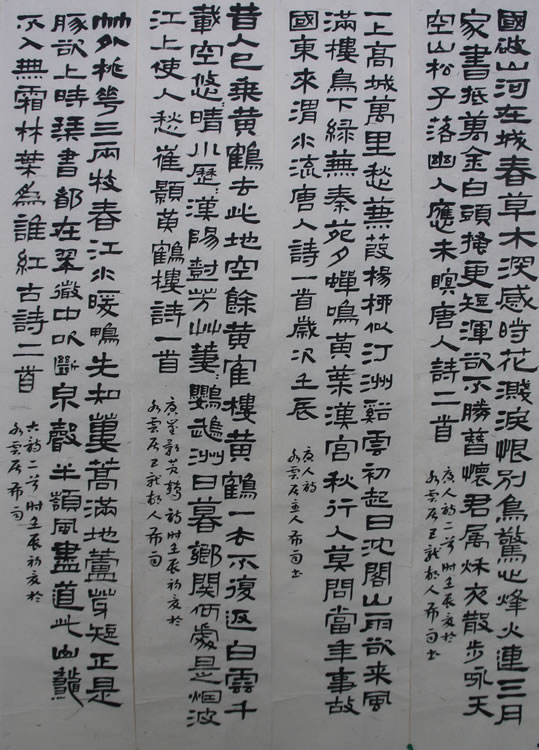 國破山河在城春草木深感時花濺淚恨別鳥驚心烽火連三月
家書抵萬金白頭搔更短渾欲不勝簪懷君屬秋夜散步詠天
空山松子落幽人應未瞑唐人詩二首
唐人詩二首時壬辰初夏於
一上高城萬里愁蒹葭楊柳似汀洲谿雲初起日沈閣山雨欲來風
滿樓鳥下綠蕪秦苑夕蟬鳴黃葉漢宮秋行人莫問當年事故
國東來渭水流唐人詩一首歲次壬辰
唐人詩
昔人已乘黃鶴去此地空餘黃鶴樓黃鶴一去不復返白雲千
載空悠:晴川歷:漢陽樹芳艸萋:鸚鵡洲日暮鄉關何處是烟波
江上使人愁崔顥黃鶴樓詩一首
竹外桃花三兩枝春江水暖鴨先知蔞蒿滿地蘆芽短正是
豚欲上時琴書都在翠微中吹斷泉聲半嶺風盡道此山龍
不入無霜林葉為誰紅古詩二首
古詩二首時壬辰初夏於